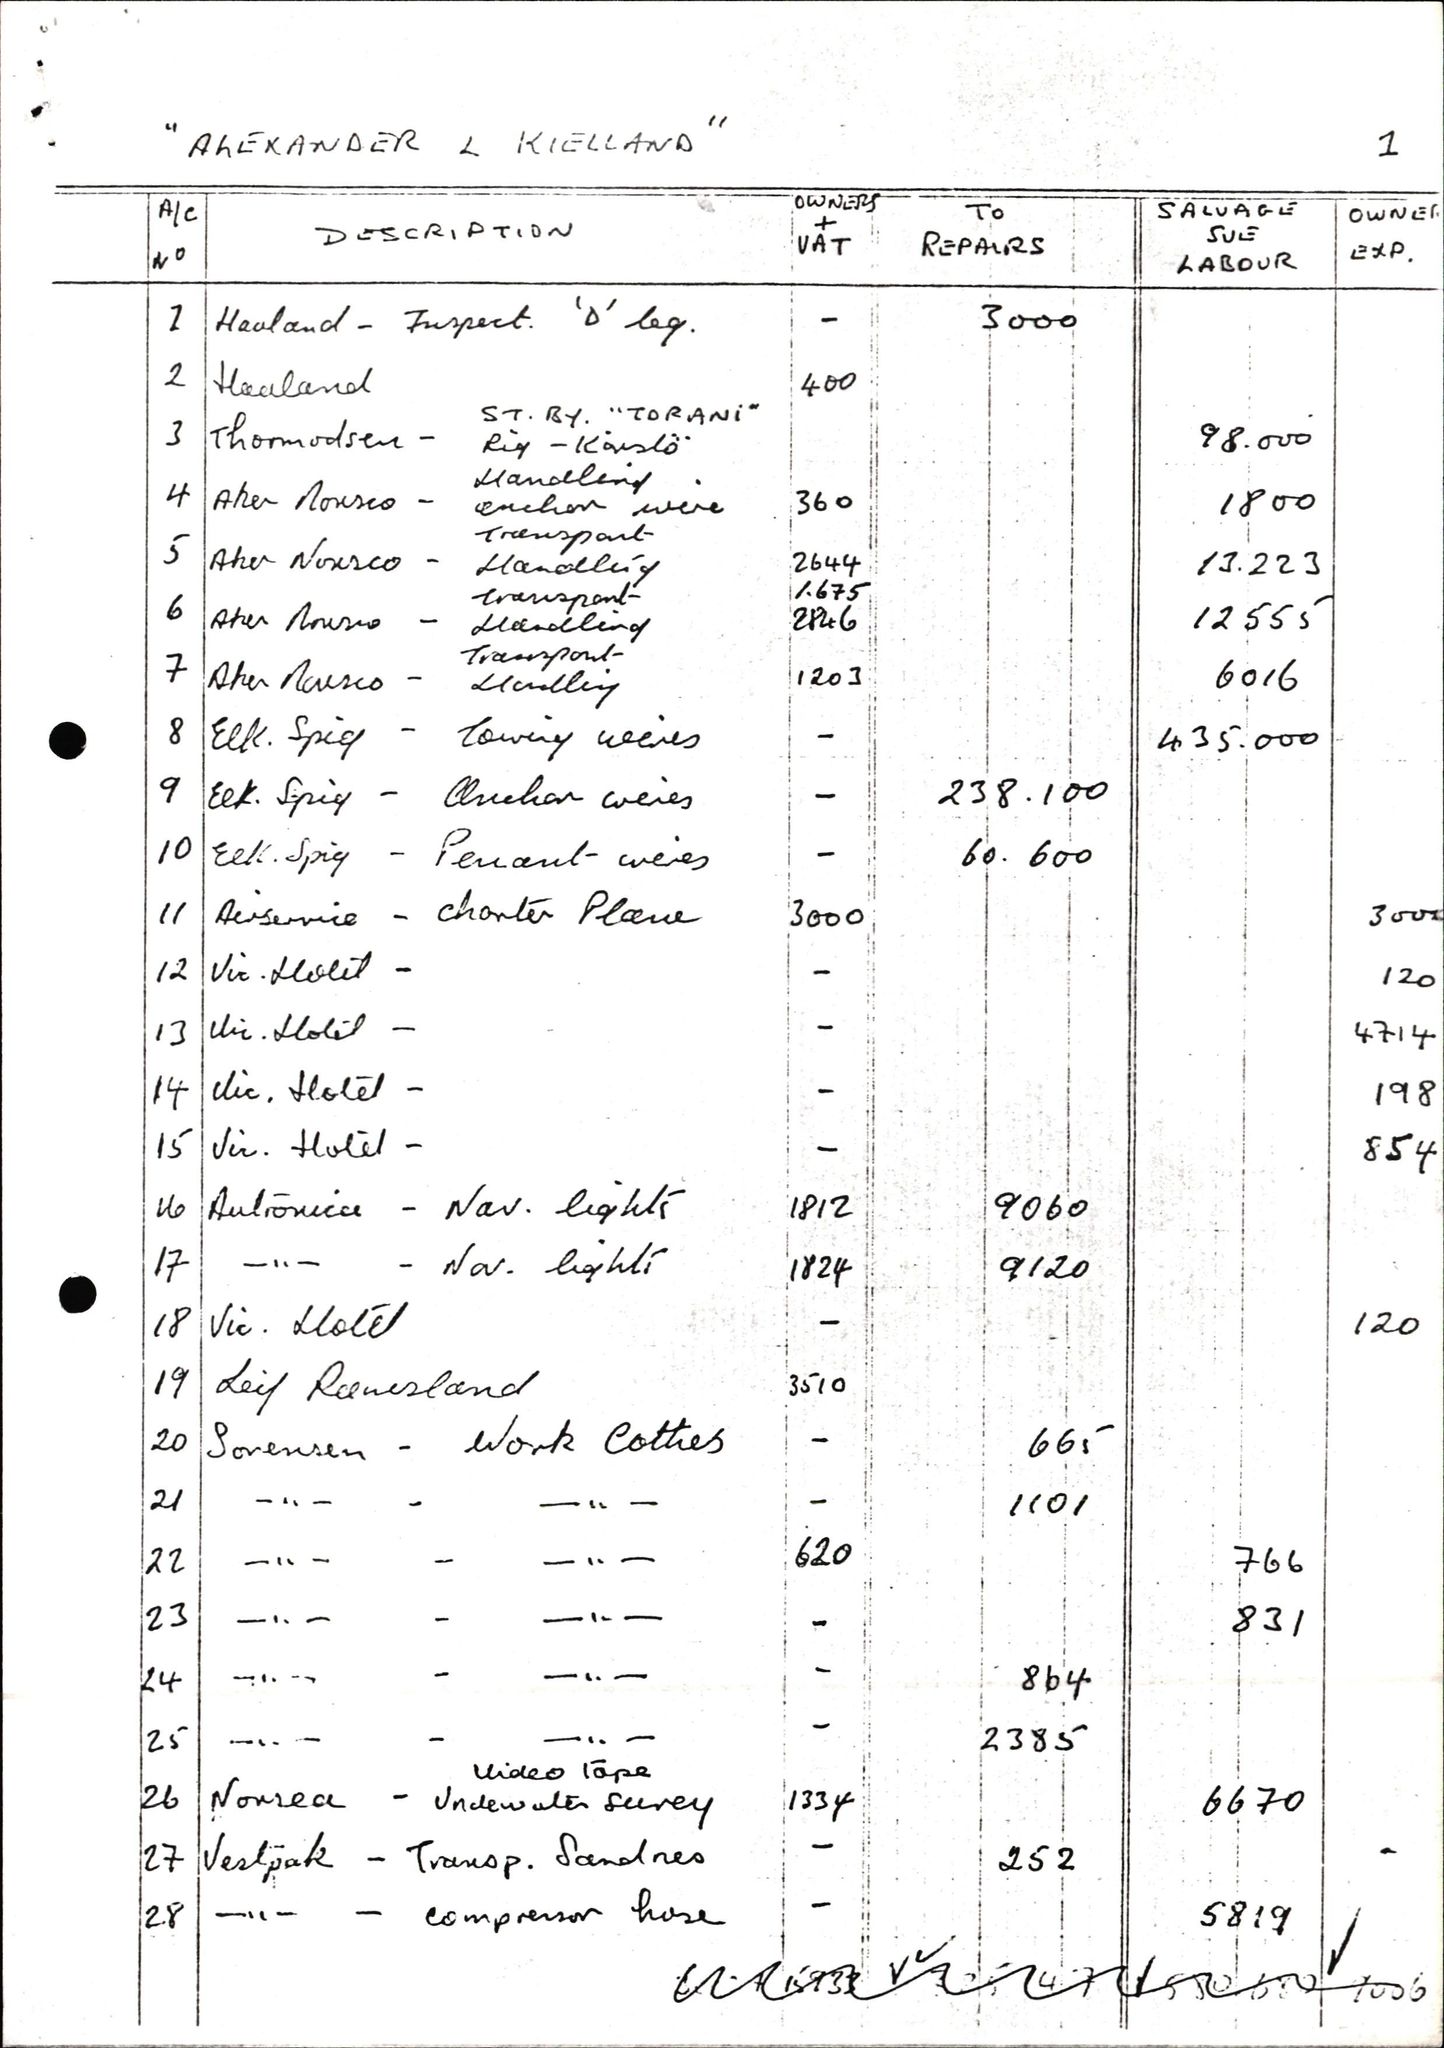 "ALEXANDER L KIELLAND" 1
A/C No DESCRIPTION OWNERS + VAT TO REPAIRS SALVAGE SUE LABOUR OWNER EXP.
1 Haaland - Inspect. 'D' leg. - 3000
2 Haaland 400
ST. BY. "TORANI"
3 Thormodsen - Rig - Kårstö 98.000
Handling
4 Aker Norsco - anchor wire 360 1800
Transport
5 Aker Norsco - Handling 2644 13.223
Transport 1.675
6 Aker Norsco - Handling 2846 12555
Transport
7 Aker Norsco - Handling 1203 6016
8 Elk. Spig - Towing wires - 435.000
9 Elk. Spig - Anchor wires - 238.100
10 Elk. Spig - Penant wires - 60.600
11 Airservice - Charter Plane 3000 3000
12 Vic. Hotel - - 120
13 Vic. Hotel - - 4714
14 Vic. Hotel - - 198
15 Vic. Hotel - - 854
16 Autronica - Nav. lights 1812 9060
17 —"— - Nav. lights 1824 9120
18 Vic. Hotel - 120
19 Leif 3510
20 Sorensen - Work Cothes - 665
21 —"— - —"— - 1101
22 —"— - —"— 620 766
23 —"— - —"— - 831
24 —"— - —"— - 864
25 —"— - —"— - 2385
Video Tape
26 Norsea - Underwater Survey 1334 6670
27 Vestpak - Transp. Sandnes - 252 -
28 —"— - compressor hose - 5819